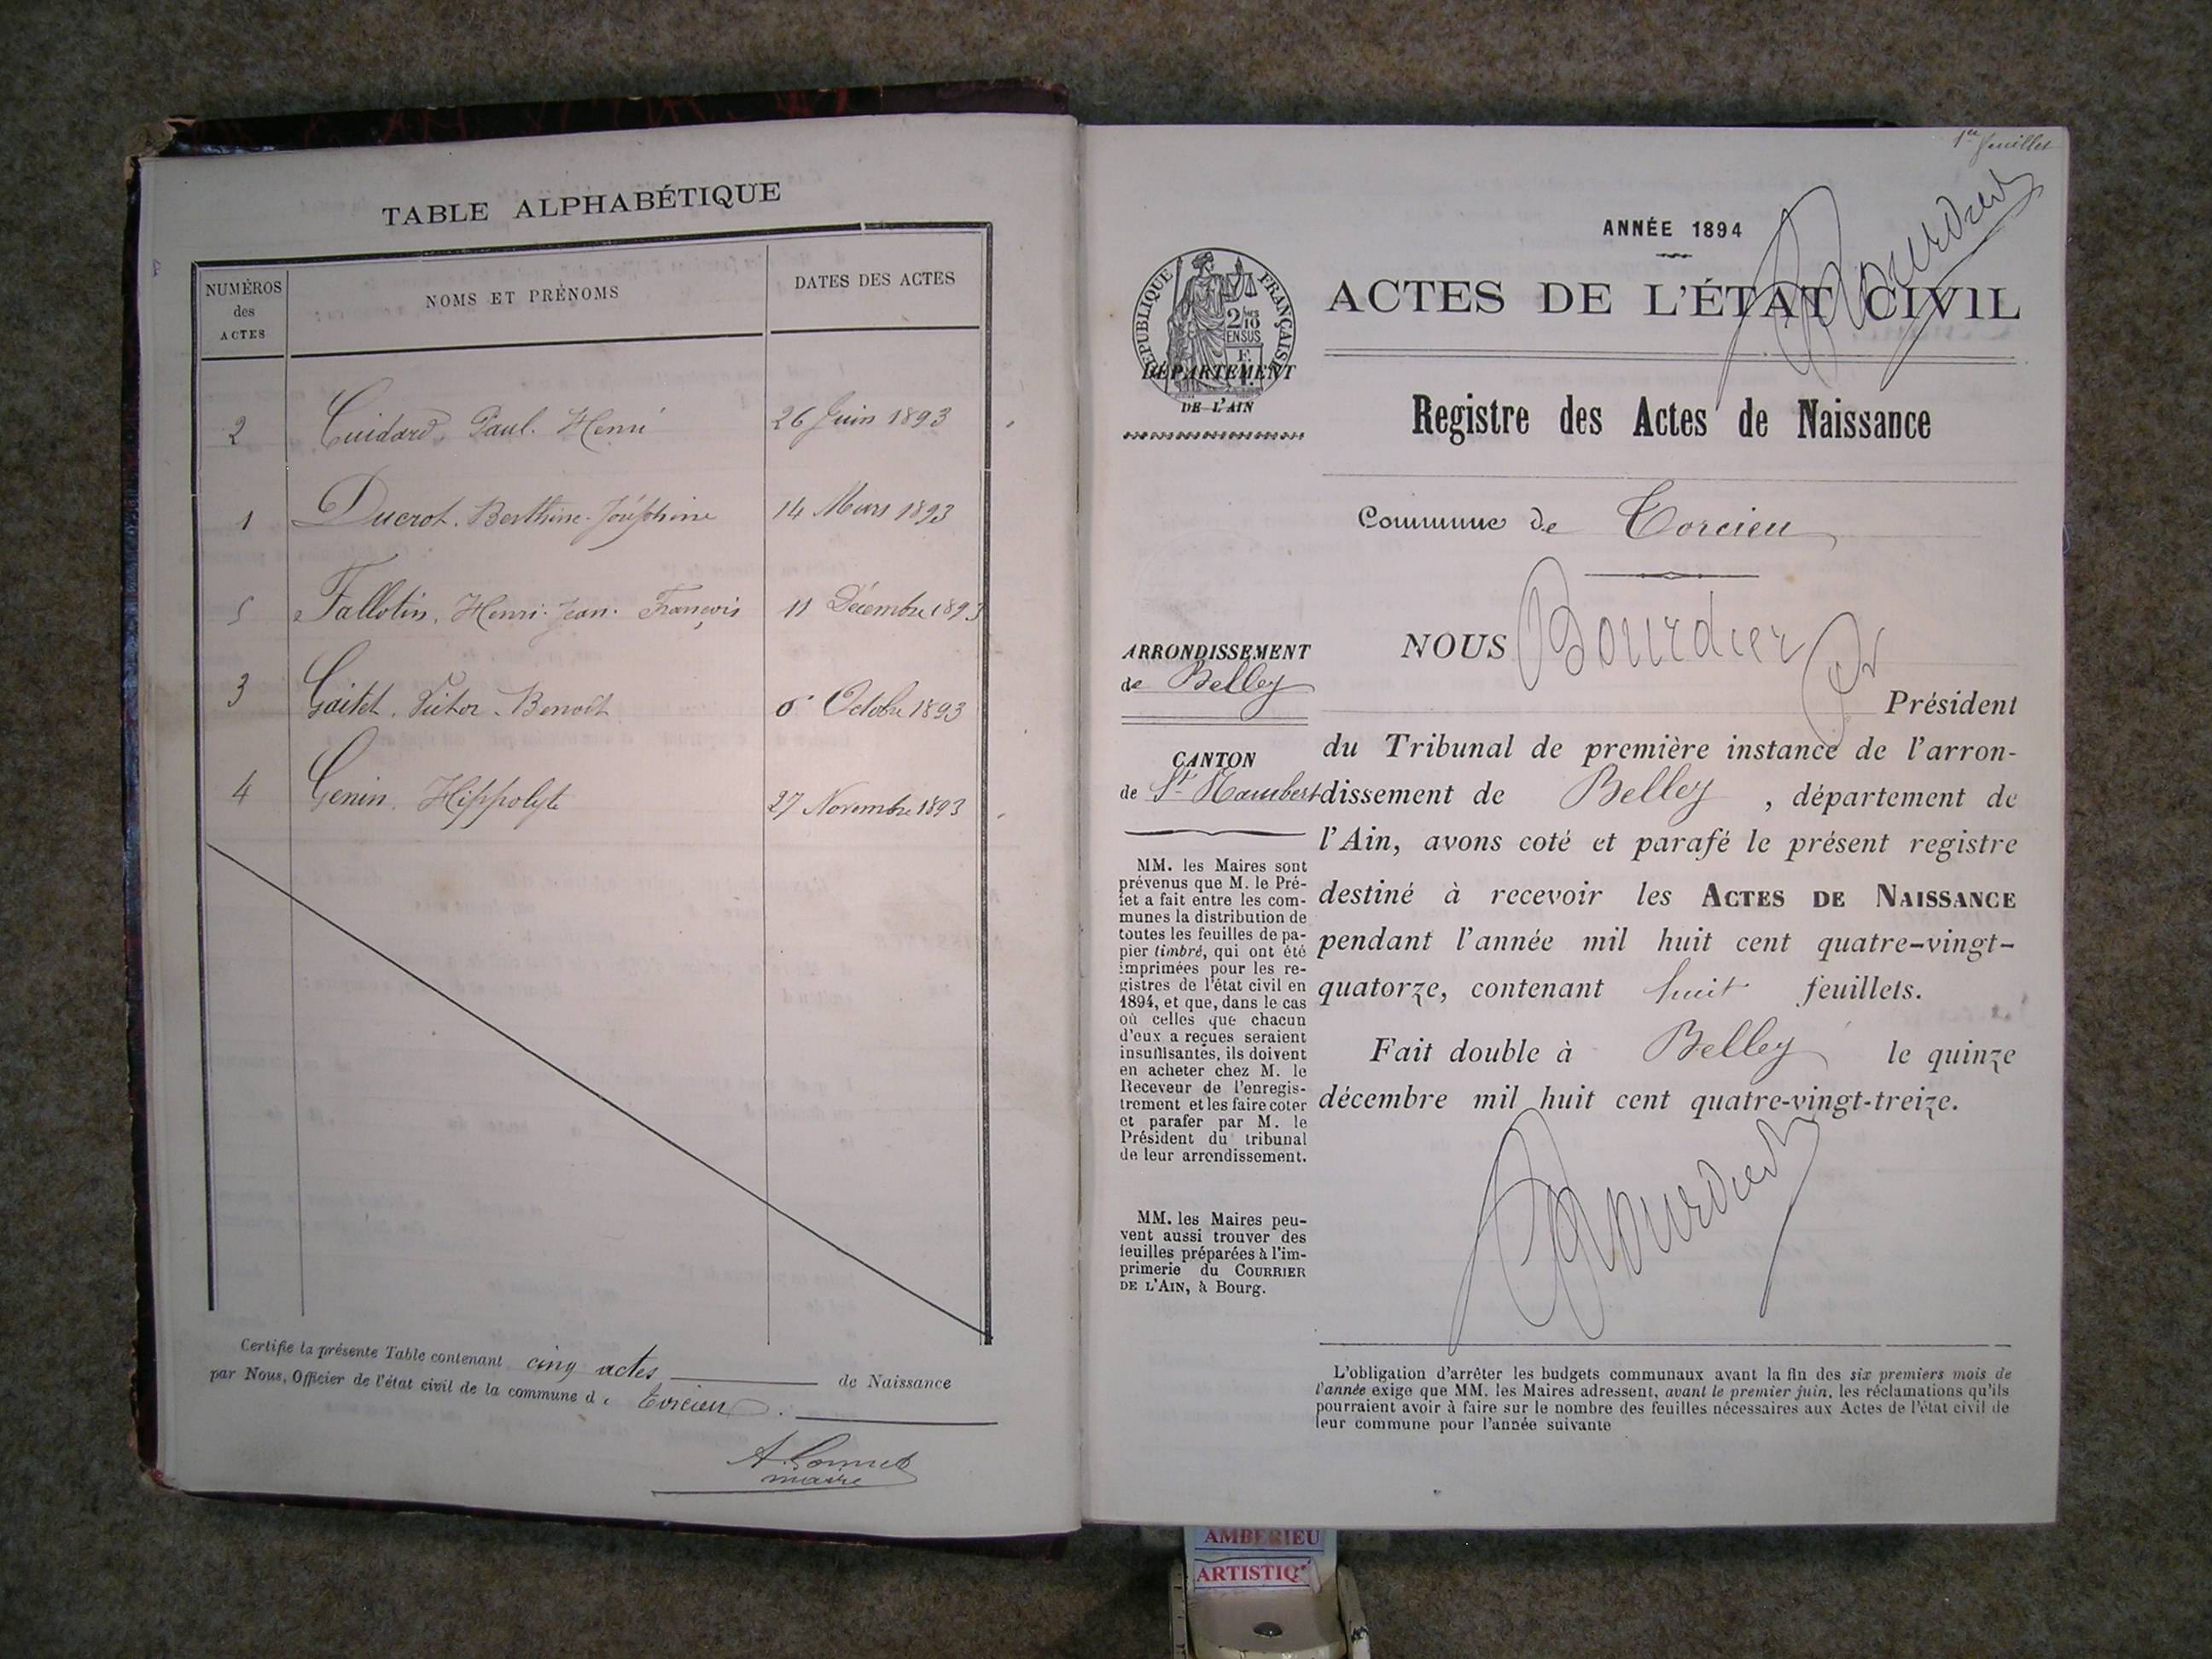 TABLE ALPHABÉTIQUE
NUMÉROS des ACTES
NOMS ET PRÉNOMS
DATES DES ACTES
2 Cuidard, Paul. Henri 26 Juin 1893
1 Ducrot. Berthine-Joséphine 14 Mars 1893
5 Fallotin, Henri-Jean-François 11 Décembre 1893
3 Gaitet. Victor-Benoît Octobre 1893
4 Genin. Hippolyte 27 Novembre 1893
Certifie la présente Table contenant cinq actes de Naissance
par Nous, Officier de l'état civil de la commune d Torcieu.
maire
1er feuillet
Bourdier
ANNÉE 1894
RÉPUBLIQUE FRANÇAISE
2/10 EN SUS
ACTES DE L'ÉTAT CIVIL
DÉPARTEMENT
DE L'AIN
Registre des Actes de Naissance
Commune de Torcieu
ARRONDISSEMENT
de Belley
CANTON
de St Rambert
MM. les Maires sont
prévenus que M. le Pré-
fet a fait entre les com-
munes la distribution de
toutes les feuilles de pa-
pier timbré, qui ont été
imprimées pour les re-
gistres de l'état civil en
1894, et que, dans le cas
où celles que chacun
d'eux a reçues seraient
insuffisantes, ils doivent
en acheter chez M. le
Receveur de l'enregis-
trement et les faire coter
et parafer par M. le
Président du tribunal
de leur arrondissement.
MM. les Maires peu-
vent aussi trouver des
feuilles préparées à l'im-
primerie du COURRIER
DE L'AIN, à Bourg.
NOUS Bourdier
Président
du Tribunal de première instance de l'arron-
dissement de Belley, département de
l'Ain, avons coté et parafé le présent registre
destiné à recevoir les ACTES DE NAISSANCE
pendant l'année mil huit cent quatre-vingt-
quatorze, contenant huit feuillets.
Fait double à Belley le quinze
décembre mil huit cent quatre-vingt-treize.
Bourdier
L'obligation d'arrêter les budgets communaux avant la fin des six premiers mois de
l'année exige que MM. les Maires adressent, avant le premier juin, les réclamations qu'ils
pourraient avoir à faire sur le nombre des feuilles nécessaires aux Actes de l'état civil de
leur commune pour l'année suivante
AMBERIEU
ARTISTIQ'